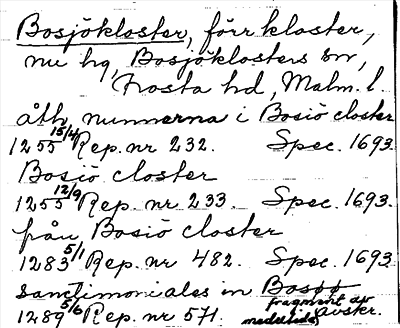 Bosjökloster, förr kloster,
nu hg, Bosjöklosters sn,
Frosta hd, Malm. l.
åth nunnerna i Bosiö closter
1255 15/4 Rep. nr 232. Spec. 1693.
Bosiö closter
1255 12/9 Rep. nr 233. Spec. 1693.
från Bosiö closter
1283 5/1 Rep. nr 482. Spec. 1693
Sanctimoniales in Bosøø
1289 5/6 Rep. nr 571. fragment av
medeltida avskr.